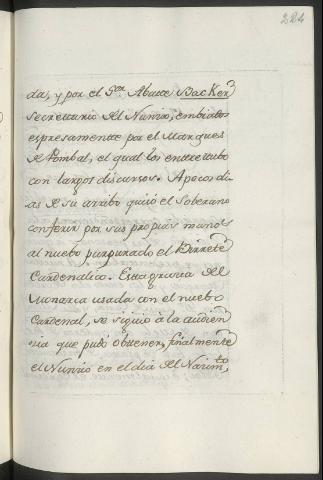 224
da, y por el S.or Abate Backer
secrettario del Nunzio, embiados
espresamentte por el Marques
de Pombal, el qual los enttrettubo
con largos discursos. A pocos di-
as de su arribo quiso el Soberano
conferir por sus propias manos
al nuebo purpurado el Birrete
Cardenalicio. Esta gracia del
Monarca usada con el nuebo
Cardenal, se siguió à la audien
cia que pudo obttener, finalmente
el Nunzio en el dia del Nazim.to